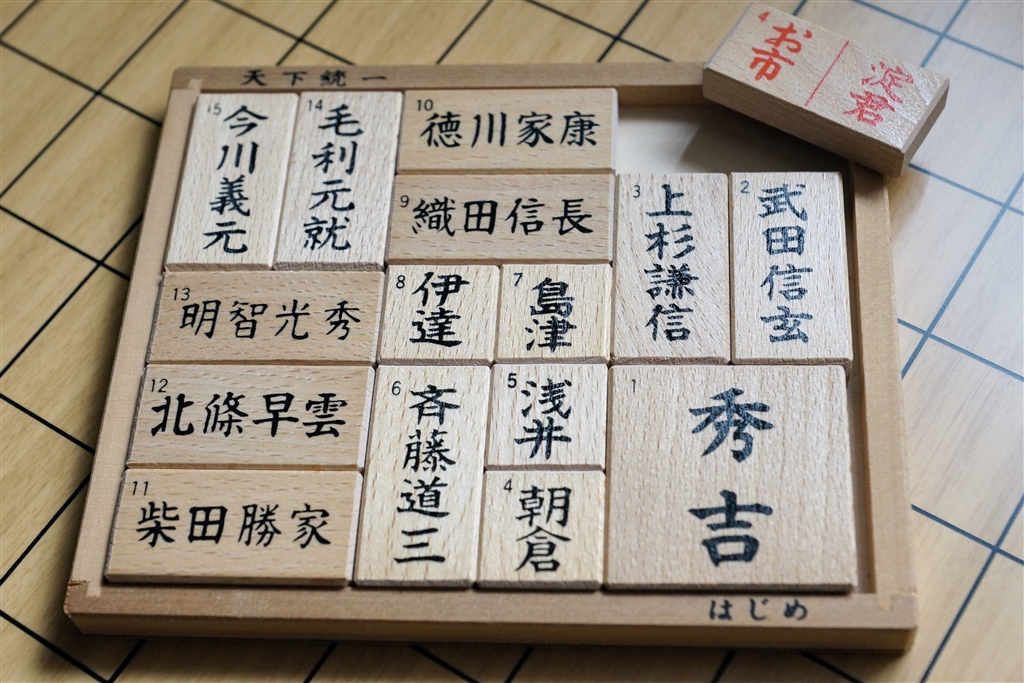 天下統一
15 今川義元
14 毛利元就
10 徳川家康
4 お市
淀君
9 織田信長
3 上杉謙信
2 武田信玄
13 明智光秀
8 伊達
7 島津
12 北條早雲
6 斉藤道三
5 浅井
1 秀吉
11 柴田勝家
4 朝倉
はじめ